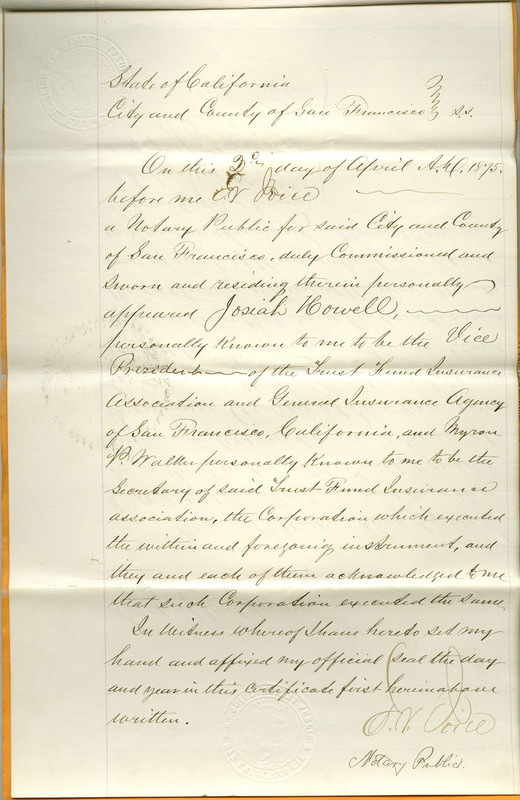 State of California
City and County of San Francisco } s.s.
On this 3d day of April A.D. 1875.
before me F.V. Voice
a Notary Public for said City and County
of San Francisco, duly Commissioned and
sworn and residing therein personally
appeared Josiah Howell,
personally Known to me to be the Vice
President of the Trust Fund Insurance
Association and General Insurance Agency
of San Francisco, California, and Myron
P. Walker personally Known to me to be the
Secretary of said Trust Fund Insurance
association, the Corporation which executed
the within and foregoing instrument, and
they and each of them acknowledged to me
that such Corporation executed the same.
In Witness whereof I have hereto set my
hand and affixed my official seal the day
and year in this certificate first hereinabove
written.
F.V. Voice
Notary Public.